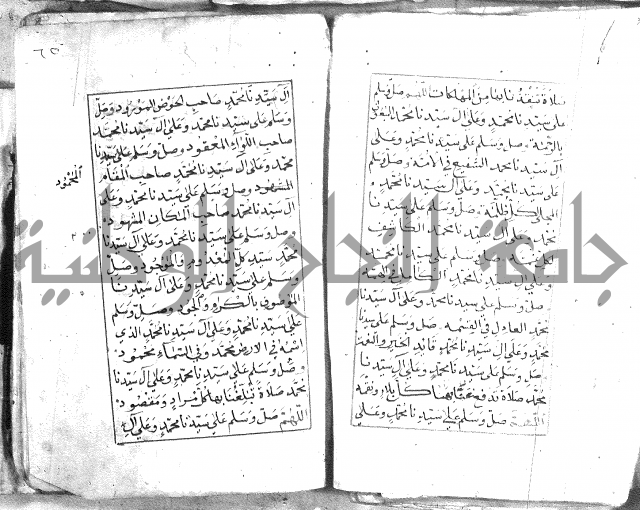 صلاة تنقذنا بها من المهلكات اللهم صل وسلم
على سيدنا محمد وعلى آل سيدنا محمد
وصل وسلم على سيدنا محمد وعلى
آل سيدنا محمد الشفيع في الأمة وصل وسلم
على سيدنا محمد وعلى آل سيدنا محمد
وصل وسلم على سيدنا
محمد وعلى آل سيدنا محمد الكاشف
صل وسلم على سيدنا محمد
وعلى آل سيدنا محمد
صل وسلم على سيدنا محمد وعلى آل سيدنا
محمد العادل في القسمه صل وسلم على سيدنا
محمد وعلى آل سيدنا محمد قائد الخير
صل وسلم على سيدنا محمد وعلى آل سيدنا
محمد صلاة تدفع عنا بها كل بلاء ونقمه
اللهم صل وسلم على سيدنا محمد وعلى
٦٥
آل سيدنا محمد صاحب الحوض المورود وصل
وسلم على سيدنا محمد وعلى آل سيدنا محمد
صاحب اللواء المعقود وصل وسلم على سيدنا
محمد وعلى آل سيدنا محمد صاحب المقام
المحمود
المشهود وصل وسلم على سيدنا محمد وعلى
آل سيدنا محمد صاحب المكان المشهود
وصل وسلم على سيدنا محمد وعلى آل سيدنا
محمد سيد كل وصل
وسلم على سيدنا محمد وعلى آل سيدنا
الموصوف بالكرم والجود وصل وسلم
على سيدنا محمد وعلى آل سيدنا محمد الذي
اسمه في الارض محمد وفي السماء محمود
وصل وسلم على سيدنا محمد وعلى آل سيدنا
محمد صلاة تبلغنا بها كل مراد ومقصود
اللهم صل وسلم على سيدنا محمد وعلى آل
جامعة النجاح الوطنية